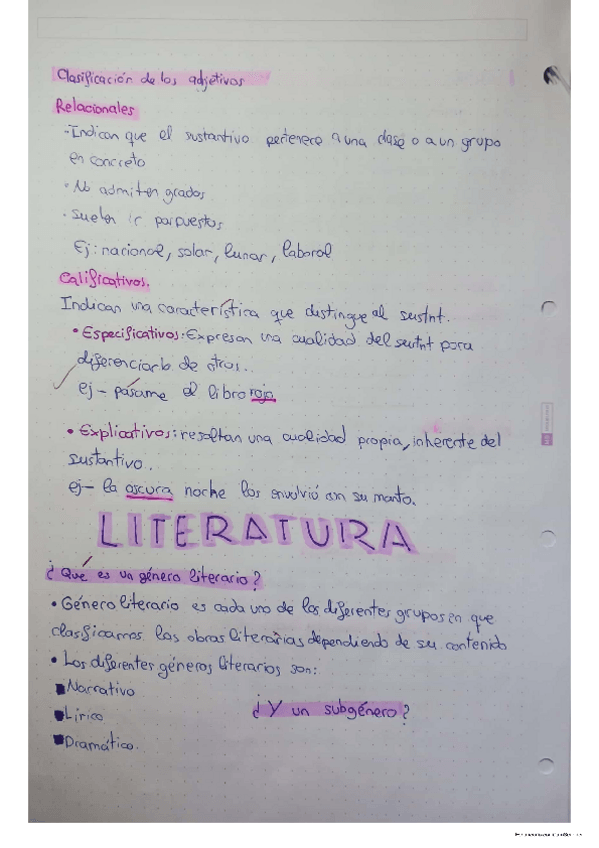 Clasificación de los adjetivos
Relacionales
-Indican que el sustantivo pertenece a una clase o a un grupo
en concreto
• No admiten grados
• Suelen ir pospuestos
Ej: nacional, solar, lunar, laboral
Calificativos.
Indican una característica que distingue al sustnt.
• Especificativos: Expresan una cualidad del sustnt para
diferenciarlo de otros.
ej - pásame el libro rojo
• Explicativos: resaltan una cualidad propia, inherente del
sustantivo.
ej- la oscura noche los envolvió con su manto.
LITERATURA
¿Qué es un género literario?
• Género literario es cada uno de los diferentes grupos en que
clasificamos las obras literarias dependiendo de su contenido
• Los diferentes géneros literarios son:
Narrativo
Lírico
Dramático.
¿Y un subgénero?